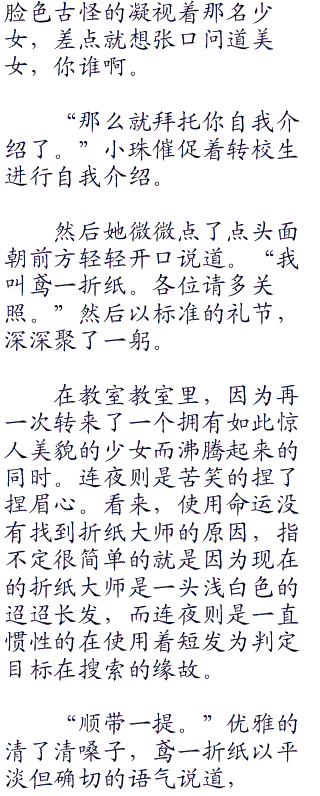 脸色古怪的凝视着那名少
女，差点就想张口问道美
女，你谁啊。
“那么就拜托你自我介
绍了。”小珠催促着转校生
进行自我介绍。
然后她微微点了点头面
朝前方轻轻开口说道。“我
叫鸢一折纸。各位请多关
照。”然后以标准的礼节，
深深聚了一躬。
在教室教室里，因为再
一次转来了一个拥有如此惊
人美貌的少女而沸腾起来的
同时。连夜则是苦笑的捏了
捏眉心。看来，使用命运没
有找到折纸大师的原因，指
不定很简单的就是因为现在
的折纸大师是一头浅白色的
迢迢长发，而连夜则是一直
惯性的在使用着短发为判定
目标在搜索的缘故。
“顺带一提。”优雅的
清了清嗓子，鸢一折纸以平
淡但确切的语气说道，